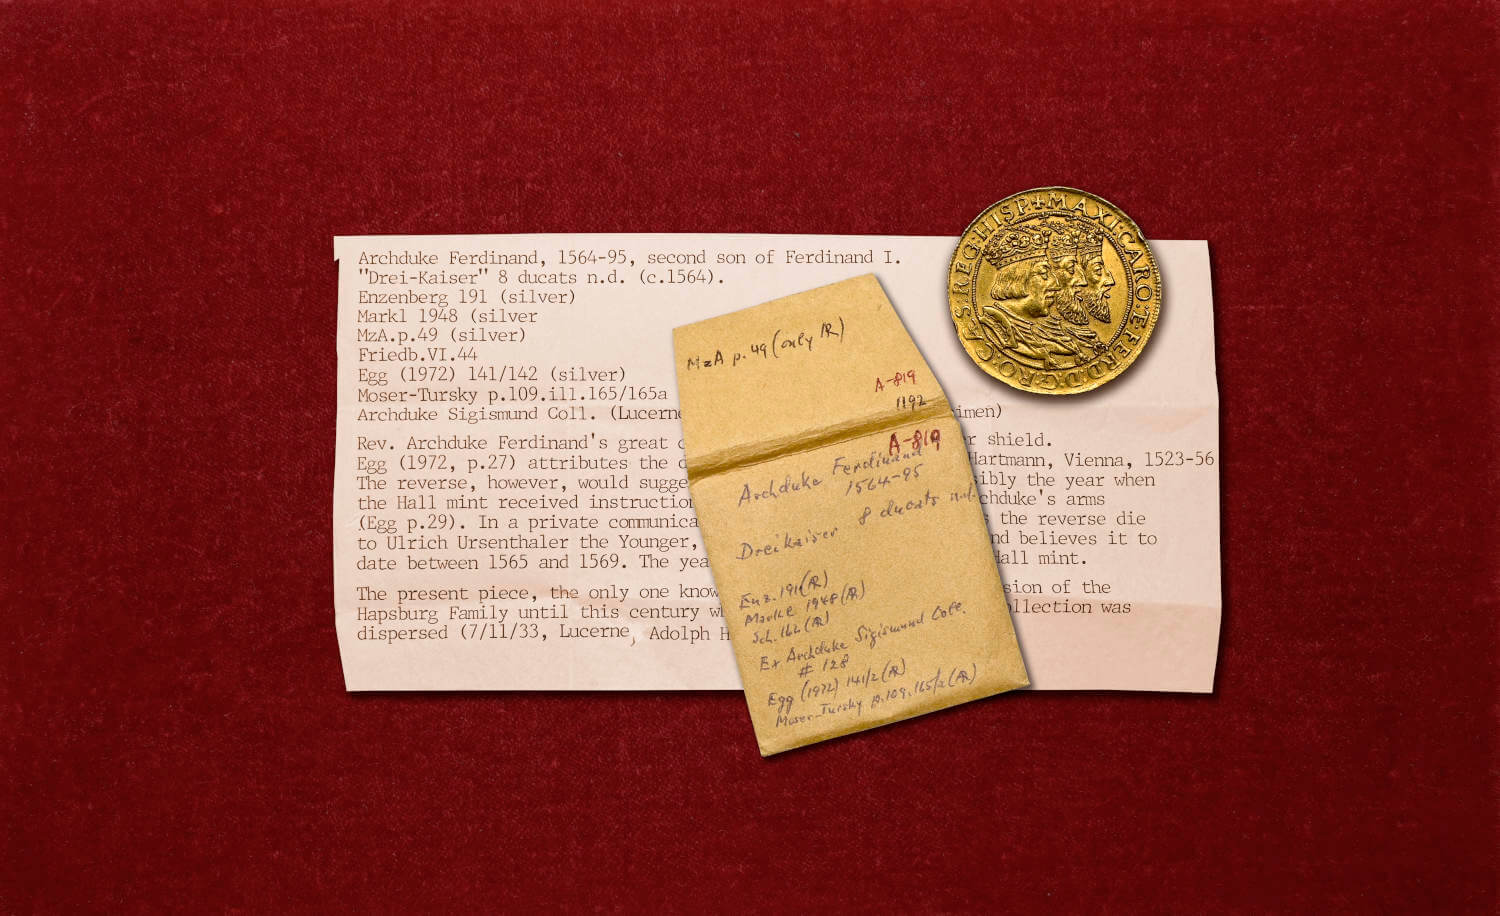 Archduke Ferdinand, 1564-95, second son of Ferdinand I.
"Drei-Kaiser" 8 ducats n.d. (c.1564).
Enzenberg 191 (silver)
Markl 1948 (silver
MzA.p.49 (silver)
Friedb.VI.44
Egg (1972) 141/142 (silver)
Moser-Tursky p.109.ill.165/165a
Archduke Sigismund Coll. (Lucerne imen)
Rev. Archduke Ferdinand's great r shield.
Egg (1972, p.27) attributes the Hartmann, Vienna, 1523-56
The reverse, however, would sugge sibly the year when
the Hall mint received instruction chduke's arms
(Egg p.29). In a private communica the reverse die
to Ulrich Ursenthaler the Younger, nd believes it to
date between 1565 and 1569. The yea Hall mint.
The present piece, the only one know sion of the
Hapsburg Family until this century wh ollection was
dispersed (7/11/33, Lucerne, Adolph H
MzA p. 49 (only AR)
A-819
1192
A-819
Archduke Ferdinand
1564-95
8 ducats n.d.
Dreikaiser
Enz. 191 (AR)
Markl 1948 (AR)
Sch. 162 (AR)
Ex Archduke Sigismund Coll.
# 128
Egg (1972) 141/2 (AR)
Moser-Tursky p.109.165/2 (AR)
MAXI·CARO·E·FERD·D·G·RO·CAS·REG·HISP